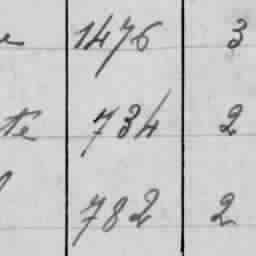 1476 3
te 734 2
782 2